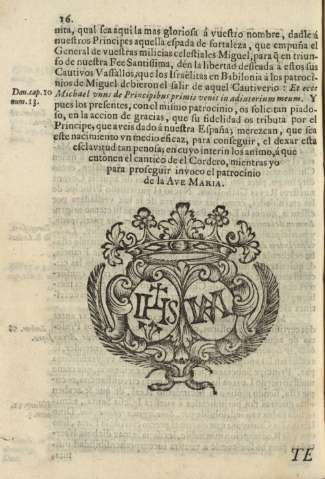 16.
nita, qual sea aqui la mas gloriosa á vuestro nombre, dadle á
nuestros Principes aquella espada de fortaleza, que empuña el
General de vuestras milicias celestiales Miguel, para q̃ en triun-
fo de nuestra Fee Santissima, dèn la libertad deseada à estos sus
Cautivos Vassallos, que los Israëlitas en Babilonia à los patroci-
nios de Miguel debieron el salir de aquel Cautiverio: Et ecce
Dan. cap. 10
num. 13.
Michael vnus de Principibus primis venit in adiutorium meum. Y
pues los presentes, con el mismo patrocinio, os solicitan piado-
so, en la accion de gracias, que su fidelidad os tributa por el
Principe, que aveis dado á nuestra España; merezcan, que sea
este nacimiento vn medio eficaz, para conseguir, el dexar esta
esclavitud tan penosa; en cuyo interin los animo, á que
entonen el cantico de el Cordero, mientras yo
para proseguir invoco el patrocinio
de la AVE MARIA.
IHS
TE